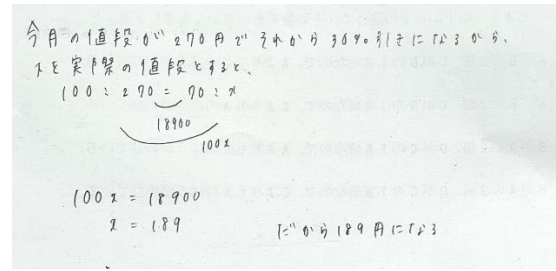 今月の値段が270円でそれから30%引きになるから、
xを実際の値段とすると、
100:270=70:x
18900
100x
100x=18900
x=189 だから189円になる